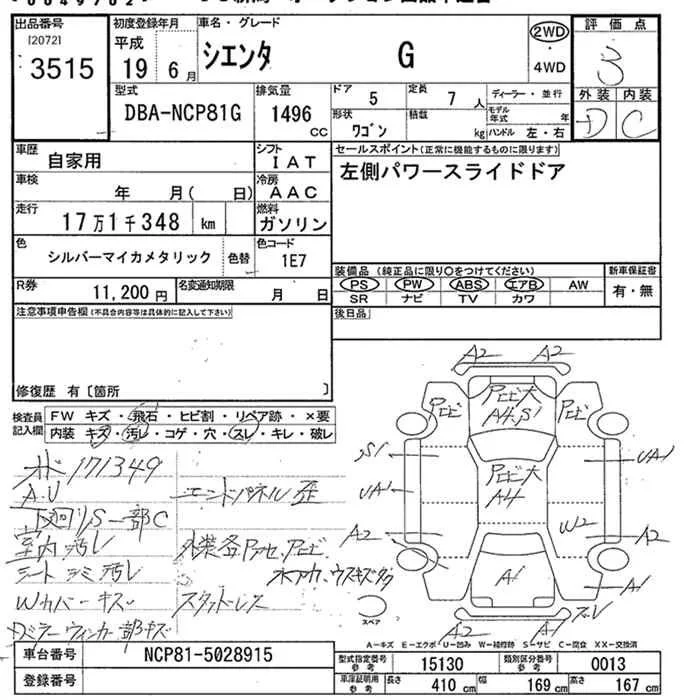 出品番号
[2072]
3515
初度登録年月
平成
19 6月
車名・グレード
シエンタ G
2WD
・
4WD
評価点
3
外装 内装
D C
型式
DBA-NCP81G
排気量
1496
cc
ドア
5
定員
7人
ディーラー・並行
モデル年式 年
形状
ワゴン
積載
kg
ハンドル 左・右
車歴
自家用
シフト
IAT
車検
年 月( 日)
冷房
AAC
走行
17万1千348 km
燃料
ガソリン
色
シルバーマイカメタリック
色替
色コード
1E7
R券
11,200円
名変通知期限
月 日
セールスポイント(正常に機能するものに限ります)
左側パワースライドドア
装備品(純正品に限り○をつけてください)
PS PW ABS エアB AW
SR ナビ TV カワ
新車保証書
有・無
後日品
注意事項申告欄(不具合内容等は具体的に記入して下さい)
修復歴 有〔箇所 〕
検査員
記入欄
FW キズ・飛石・ヒビ割・リペア跡・×要
内装 キズ・汚レ・コゲ・穴・スレ・キレ・破レ
171349
A.V
下廻りS一部C
室内汚レ
シートシミ汚レ
Wカバーキズ
Dミラーウィンカー部キズ
エンドパネル歪
スタッドレス
A2 A2
A4.S1
S1
UA1
UA1
A4
W2
A2
A2
A1
A1
A2
A1
スペア
A-キズ E-エクボ U-凹み W-補修跡 S-サビ C-腐食 XX-交換済
車台番号
NCP81-5028915
登録番号
型式指定番号
参考
15130
類別区分番号
参考
0013
車庫証明用
参考
長さ
410 cm
幅
169 cm
高さ
167 cm